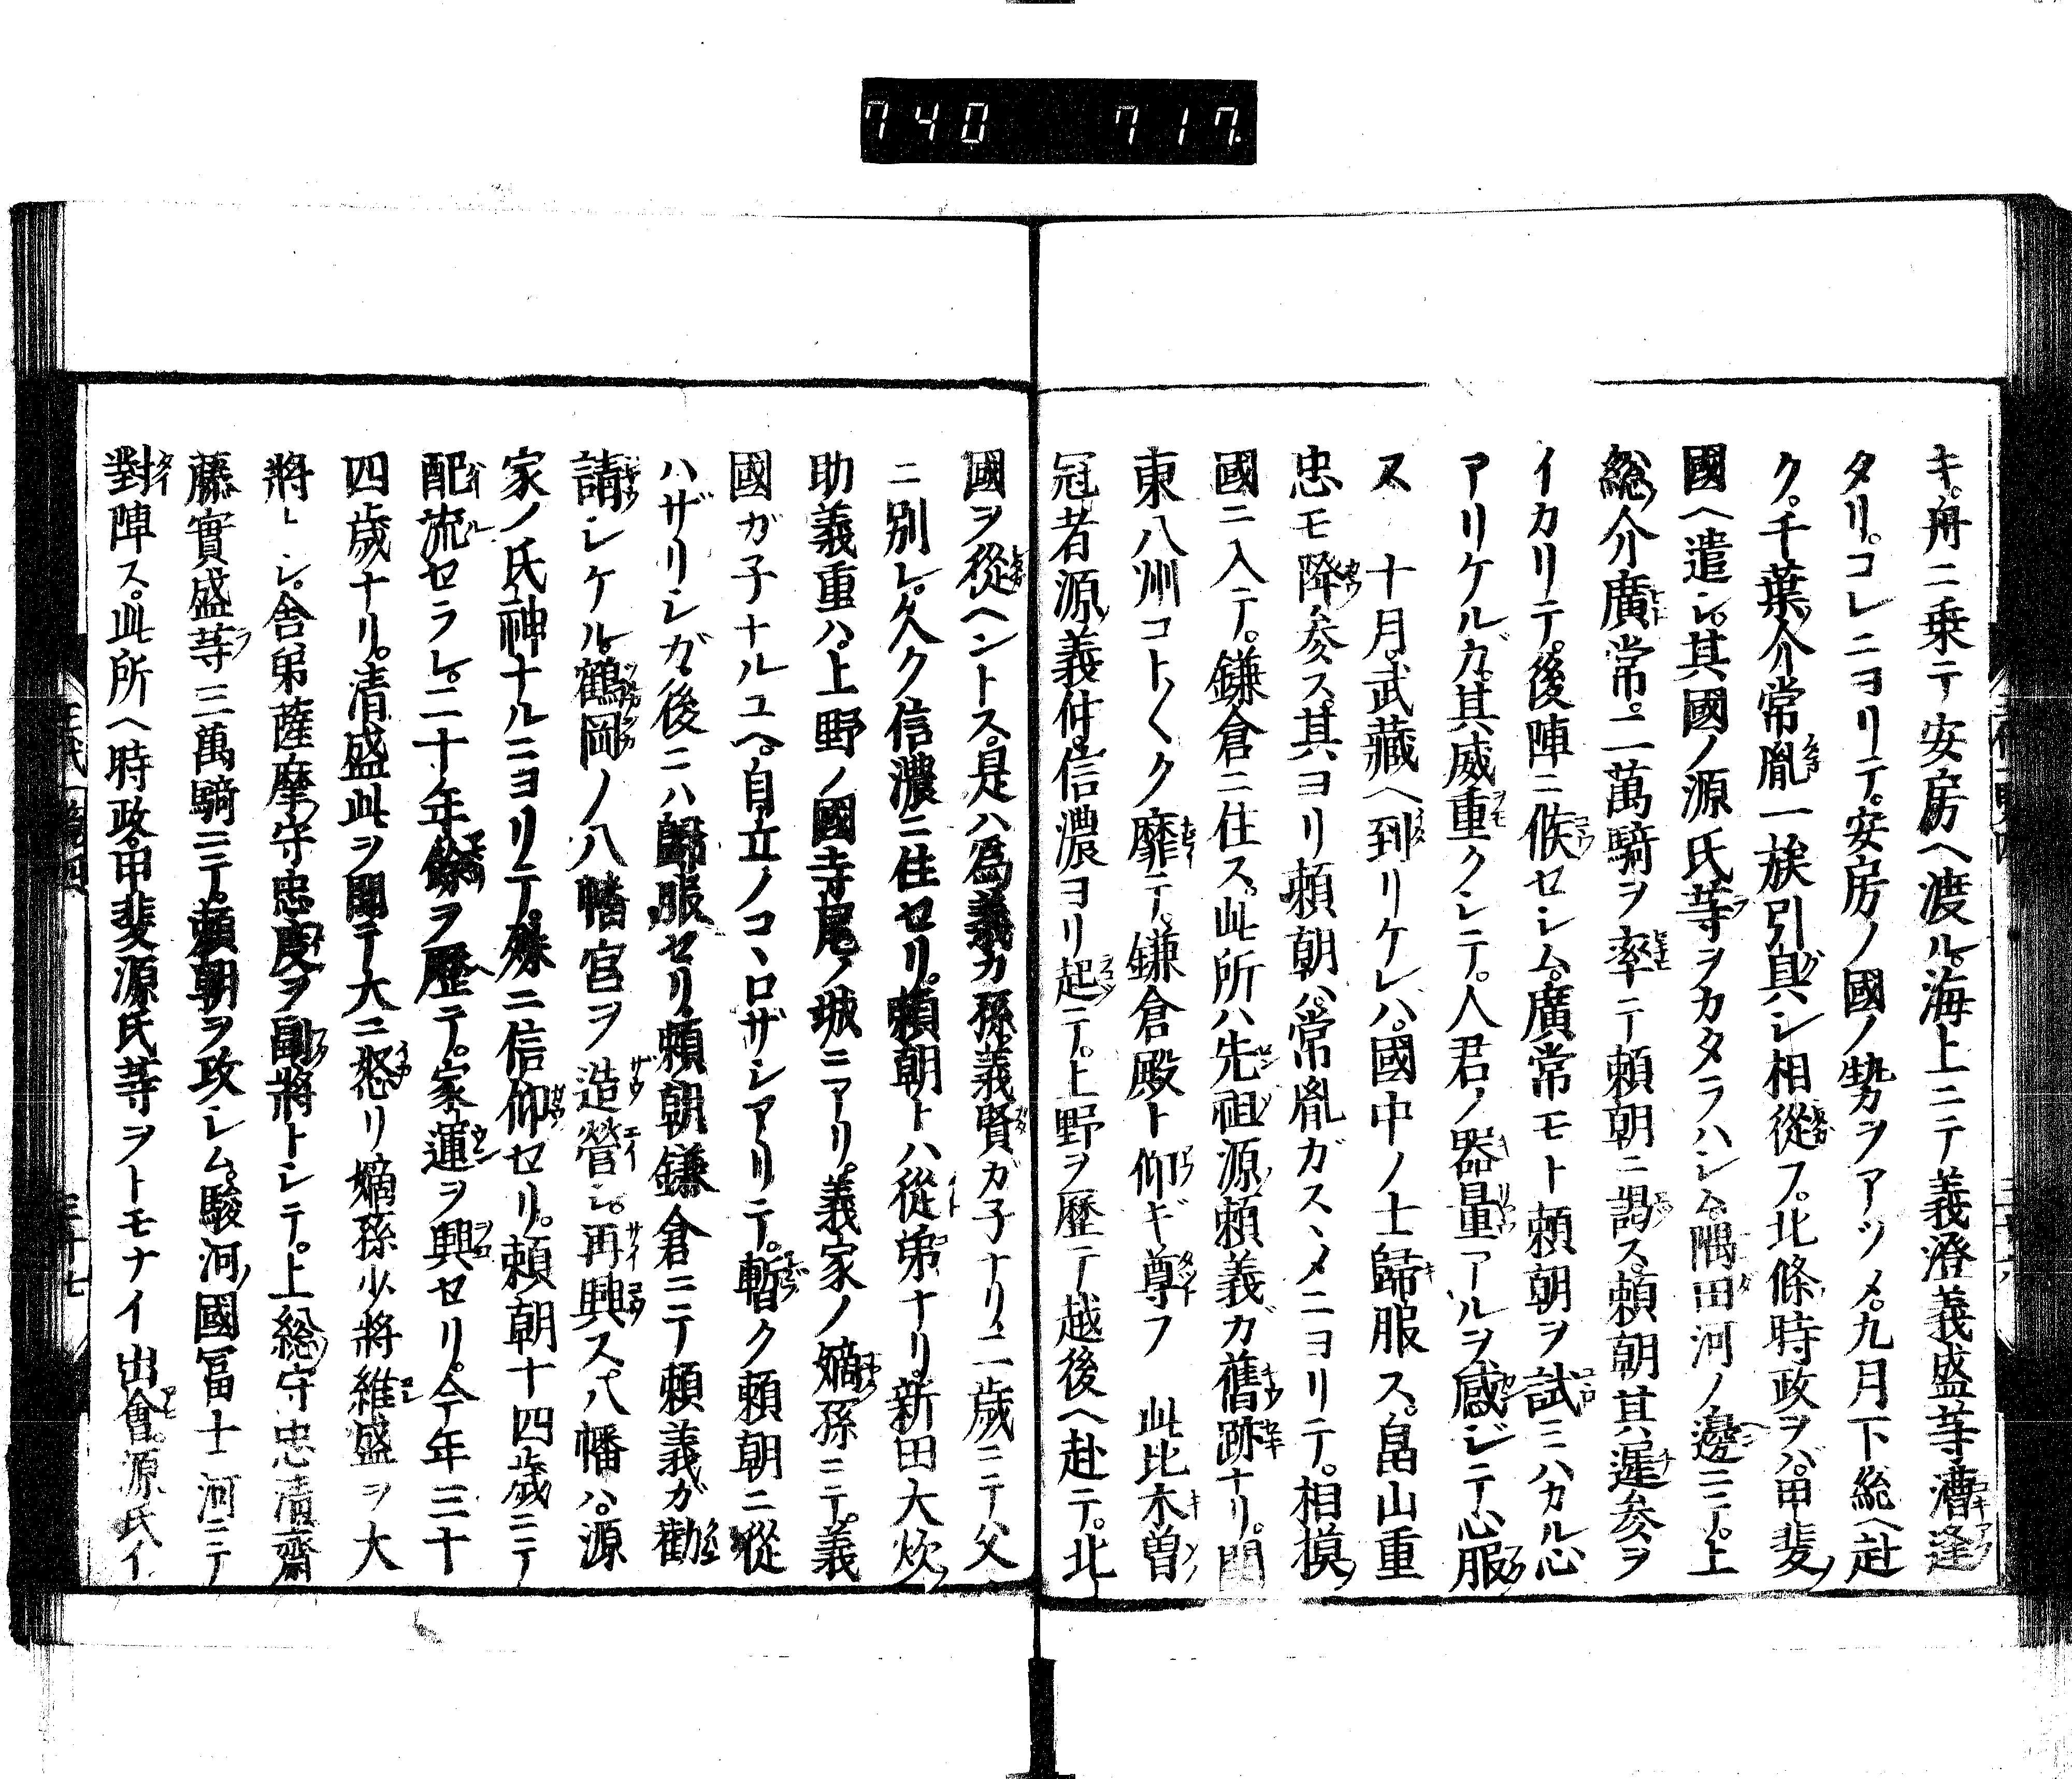 740 717
キ。舟ニ乗テ安房ヘ渡ル。海上ニテ義澄義盛等漕逢
タリ。コレニヨリテ。安房ノ國ノ勢ヲアツメ。九月下総ヘ赴
ク。千葉介常胤一族引具シ相從フ。北條時政ヲバ。甲斐
國ヘ遣シ。其國ノ源氏等ヲカタラハシム。隅田河ノ邊ニテ。上
総介廣常。二萬騎ヲ率テ頼朝ニ謁ス。頼朝其遅参ヲ
イカリテ。後陣ニ候セシム。廣常モト頼朝ヲ試ミハカル心
アリケルガ。其威重クシテ。人君ノ器量アルヲ感ジテ心服
ス 十月。武藏ヘ到リケレハ。國中ノ士歸服ス。畠山重
忠モ降参ス。其ヨリ頼朝ハ。常胤ガスヽメニヨリテ。相模
國ニ入テ。鎌倉ニ住ス。此所ハ先祖源頼義ガ舊跡ナリ。関
東八州コト〱ク靡テ。鎌倉殿ト仰ギ尊フ 此比木曽
冠者源義仲。信濃ヨリ起テ。上野ヲ歴テ越後ヘ赴テ。北
國ヲ從ヘントス。是ハ為義カ孫。義賢ガ子ナリ。二歳ニテ父
ニ別レ。久ク信濃ニ住セリ。頼朝トハ從弟ナリ。新田大炊
助義重ハ。上野ノ國寺尾ノ城ニアリ。義家ノ嫡孫ニテ。義
國ガ子ナルユヘ。自立ノコヽロザシアリテ。暫ク頼朝ニ從
ハザリシガ。後ニハ歸服セリ。頼朝鎌倉ニテ頼義ガ勸
請シケル。鶴岡ノ八幡宮ヲ造營シ。再興ス。八幡ハ。源
家ノ氏神ナルニヨリテ。殊ニ信仰セリ。頼朝十四歳ニテ
配流セラレ。二十年餘ヲ歴テ。家運ヲ興セリ。今年三十
四歳ナリ。清盛此ヲ聞テ大ニ怒リ嫡孫少將維盛ヲ大
將トシ。舎弟薩摩守忠度ヲ副將トシテ。上総守忠清齋
藤實盛等三萬騎ニテ。頼朝ヲ攻シム。駿河國冨士河ニテ
對陣ス。此所ヘ時政。甲斐源氏等ヲトモナイ出會。源氏イ